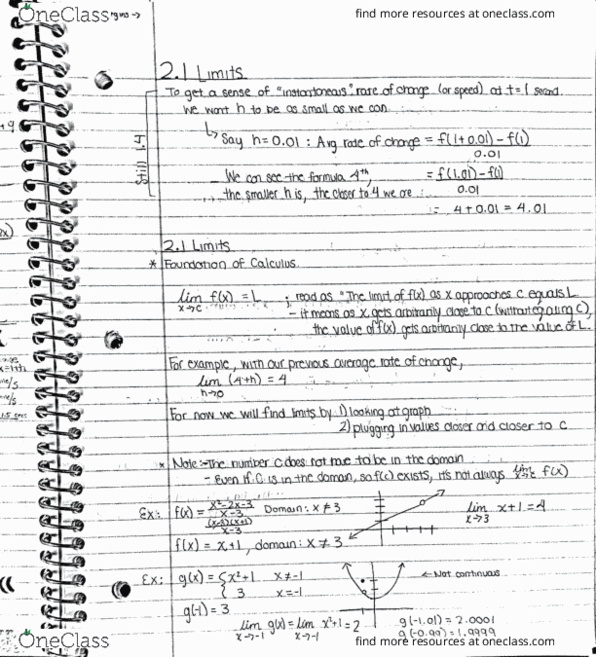 OneClass
find more resources at oneclass.com
2.1 Limits
To get a sense of "instantaneous" rate of change (or speed) at t=1 second.
we want h to be as small as we can
Still 1.4
↳ Say h=0.01 : Avg rate of change = f(1+0.01)-f(1)
0.01
- We can see the formula 4+h,
= f(1.01)-f(1)
the smaller h is, the closer to 4 we are
0.01
= 4+0.01 = 4.01
2.1 Limits
* Foundation of Calculus
lim f(x) = L ; read as "The limit of f(x) as x approaches c equals L
x→c
- it means as x gets arbitrarily close to c (without equaling c),
the value of f(x) gets arbitrarily close to the value of L.
For example, with our previous average rate of change,
lim (4+h) = 4
h→0
For now we will find limits by 1) looking at graph
2) plugging in values closer and closer to c
* Note:-The number c does not have to be in the domain
- Even if c is in the domain, so f(c) exists, it's not always lim f(x)
x→c
Ex: f(x) = x²-2x-3 Domain: x≠3
x-3
(x-3)(x+1)
x-3
lim x+1=4
x→3
f(x) = x+1, domain: x≠3
Ex: g(x) = { x²+1 x≠-1
3 x=-1
← Not continuous
g(-1)=3
lim g(x)=lim x²+1=2
x→-1 x→-1
g(-1.01) = 2.0001
g(-0.99) = 1.9999
OneClass
find more resources at oneclass.com